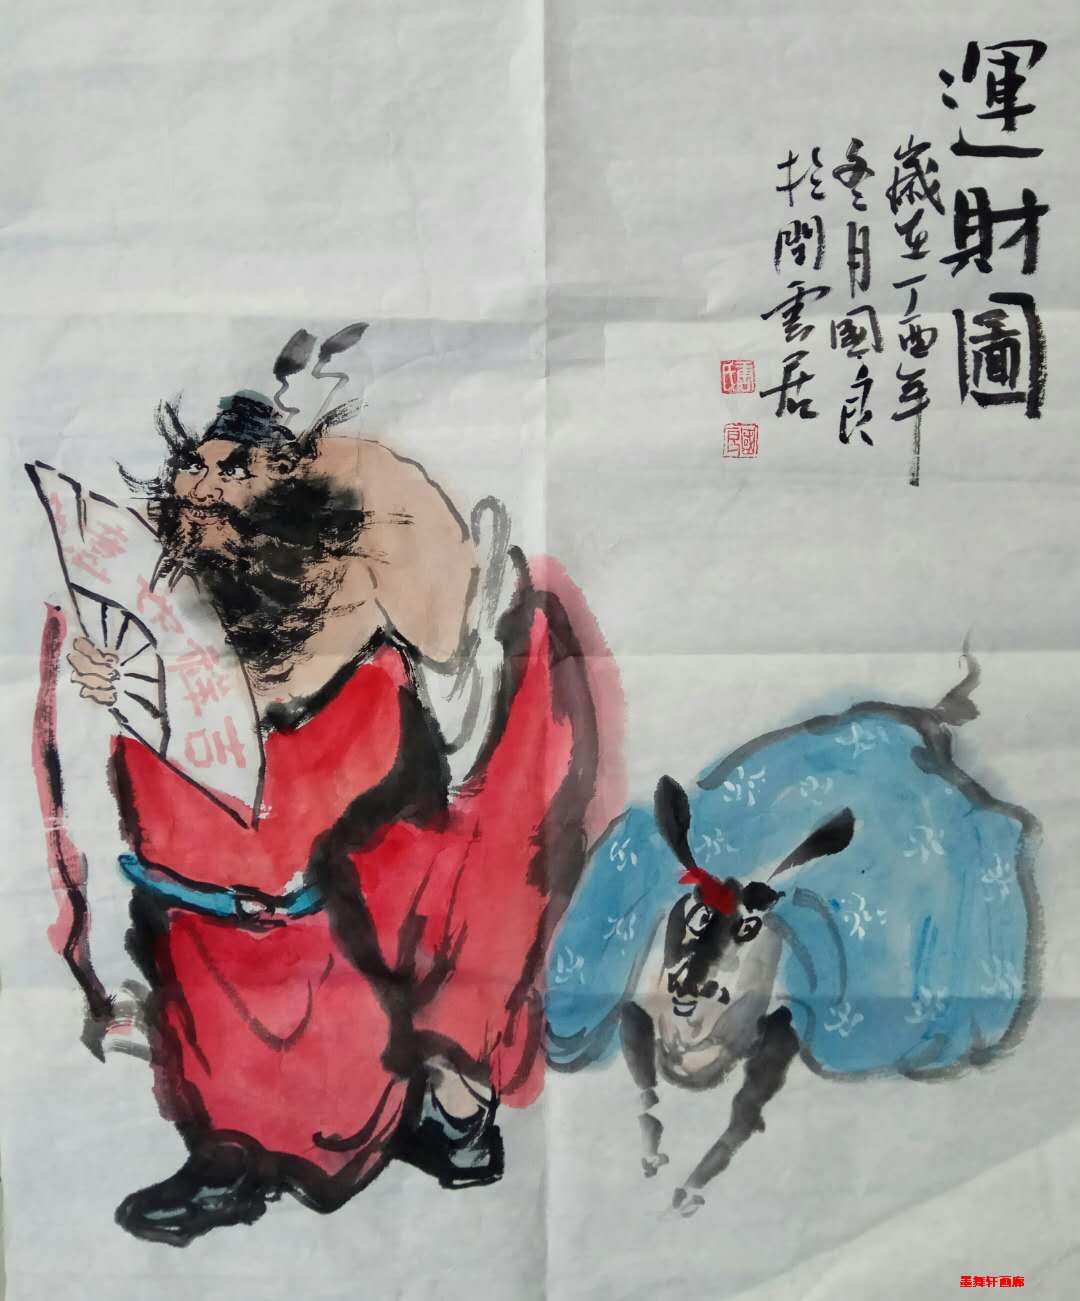 運財圖
歲在丁酉年
冬月國良
於閒雲居
國良
吉祥如意
墨舞轩画廊